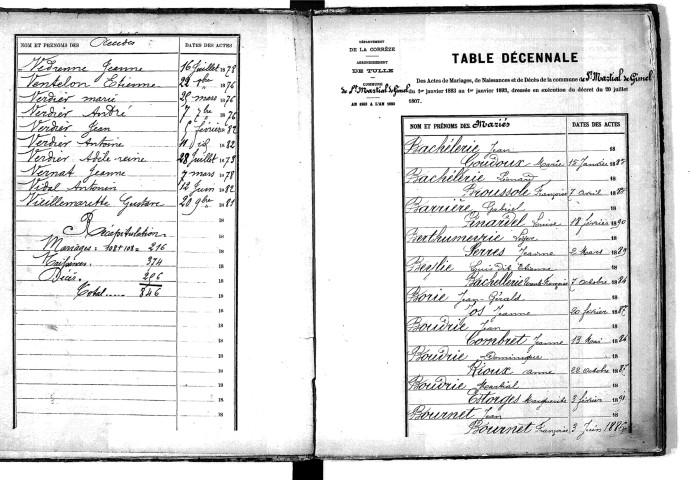 NOM ET PRÉNOMS DES Décédés DATES DES ACTES
Védrenne Jeanne 16 Juillet 1878
Ventelon Etienne 22 9bre 1876
Verdier marie 25 mars 1876
Verdier André 7 1876
Verdier Jean 5 février 1882
Verdier Antoine 11 1882
Verdier Adèle reine 28 Juillet 1873
Vernat Jeanne 7 mars 1878
Vidal Antonin 14 Juin 1882
Vieillemarette Gustave 20 9bre 1881
Récapitulation
Mariages = 108+108 = 216
Naissances 374
Décès 256
Total 846
DÉPARTEMENT
DE LA CORRÈZE
ARRONDISSEMENT
DE TULLE
COMMUNE
de St Martial de Gimel
AN 1883 A L'AN 1893
TABLE DÉCENNALE
Des Actes de Mariages, de Naissances et de Décès de la commune de St Martial de Gimel
1er janvier 1883 au 1er janvier 1893, dressée en exécution du décret du 20 juillet
1807.
NOM ET PRÉNOMS DES Mariés DATES DES ACTES
Bachèlerie Jean 18
Goudoux Marie 15 Janvier 18
Bachèllerie Léonard 18
Broussole Françoise 7 avril 18
Barrière Gabriel 18
Pinardel Louise 18 février 1890
Berthumeyrie 18
Perres Jeanne 2 Mars 1889
Beylie Louis dit Etienne 18
Bachellerie Françoise 7 octobre 1884
Borie Jean-Gérald 18
Jos Jeanne 20 février 1887
Boudrie Jean 18
Combret Jeanne 19 Mai 1886
Boudrie Dominique 18
Rioux anne 22 octobre 1887
Boudrie Martial 18
Estorges Marguerite 3 février 1891
Bournet Jean 18
Bournet Françoise 3 Juin 1886